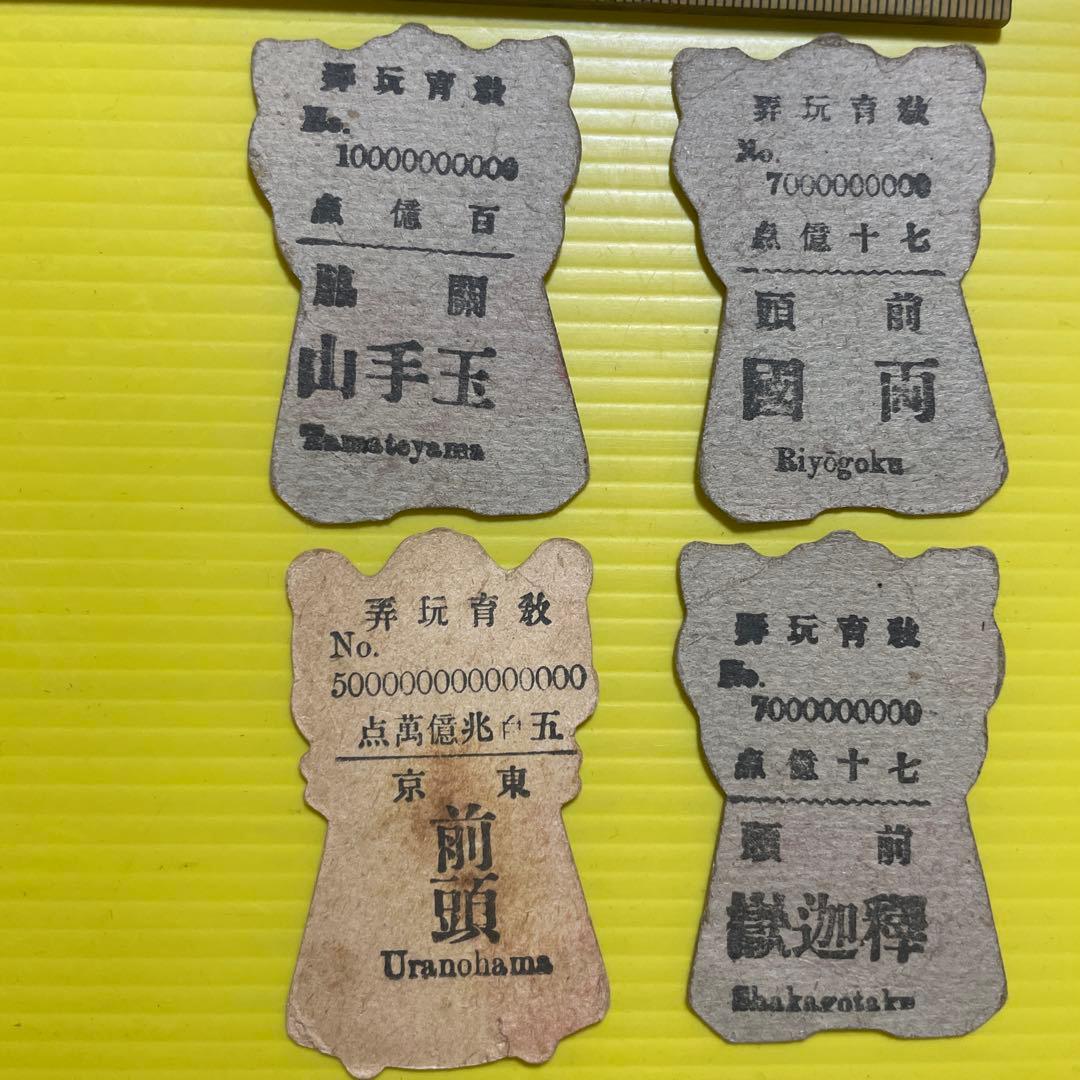 敎育玩弄
No.
10000000000
百億点
關脇
玉手山
Tamateyama
敎育玩弄
No.
7000000000
七十億点
前頭
両國
Riyōgoku
敎育玩弄
No.
500000000000000
五百兆億萬点
東京
前頭
Uranohama
敎育玩弄
No.
7000000000
七十億点
前頭
釋迦嶽
Shakagotake